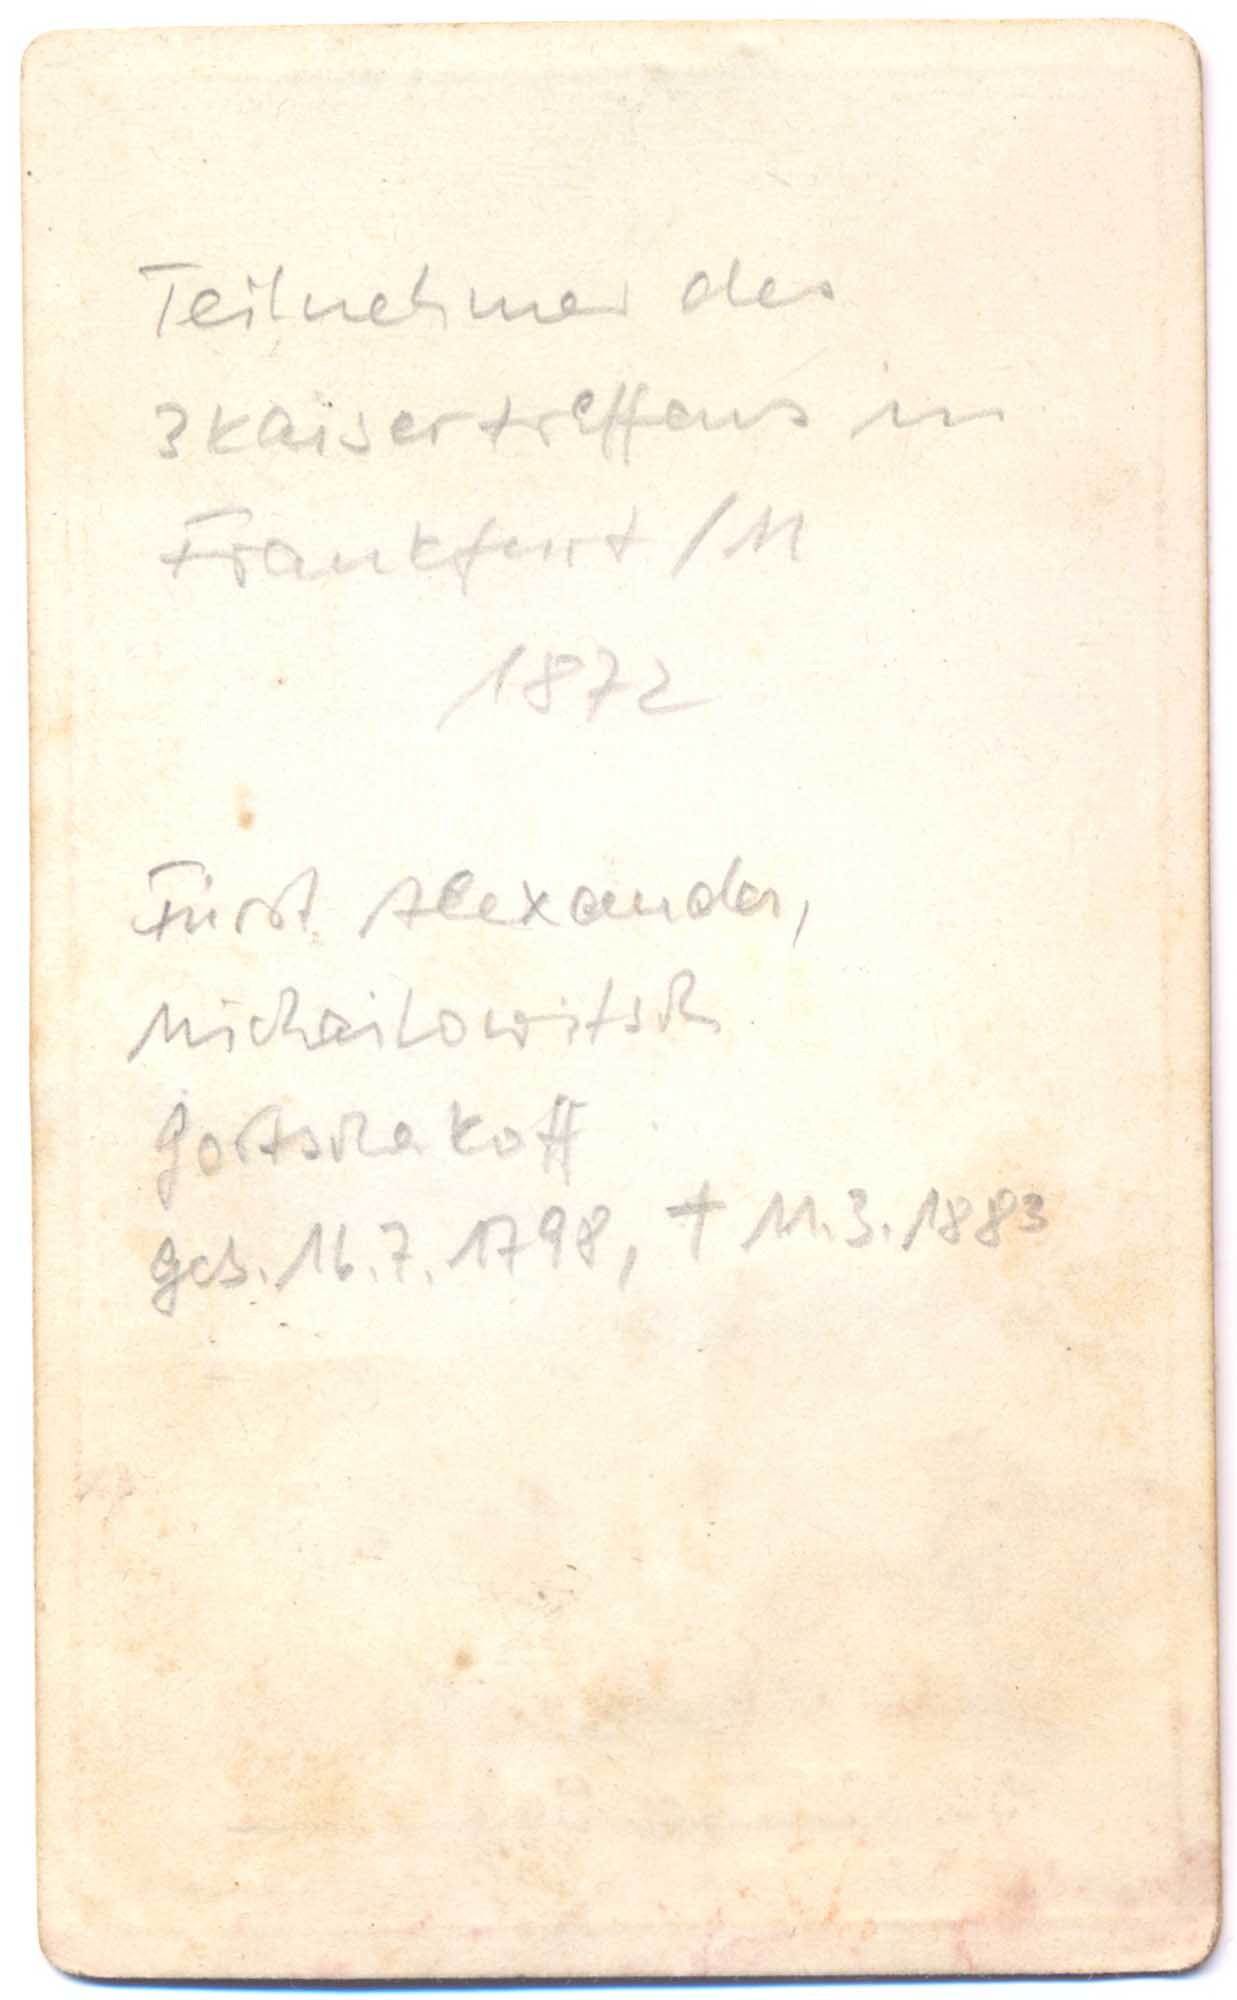 Teilnehmer des
3kaisertreffens in
Frankfurt/M
1872
Fürst Alexander,
Michailowitsch
Gortschakoff
geb. 16.7.1798, † 11.3.1883